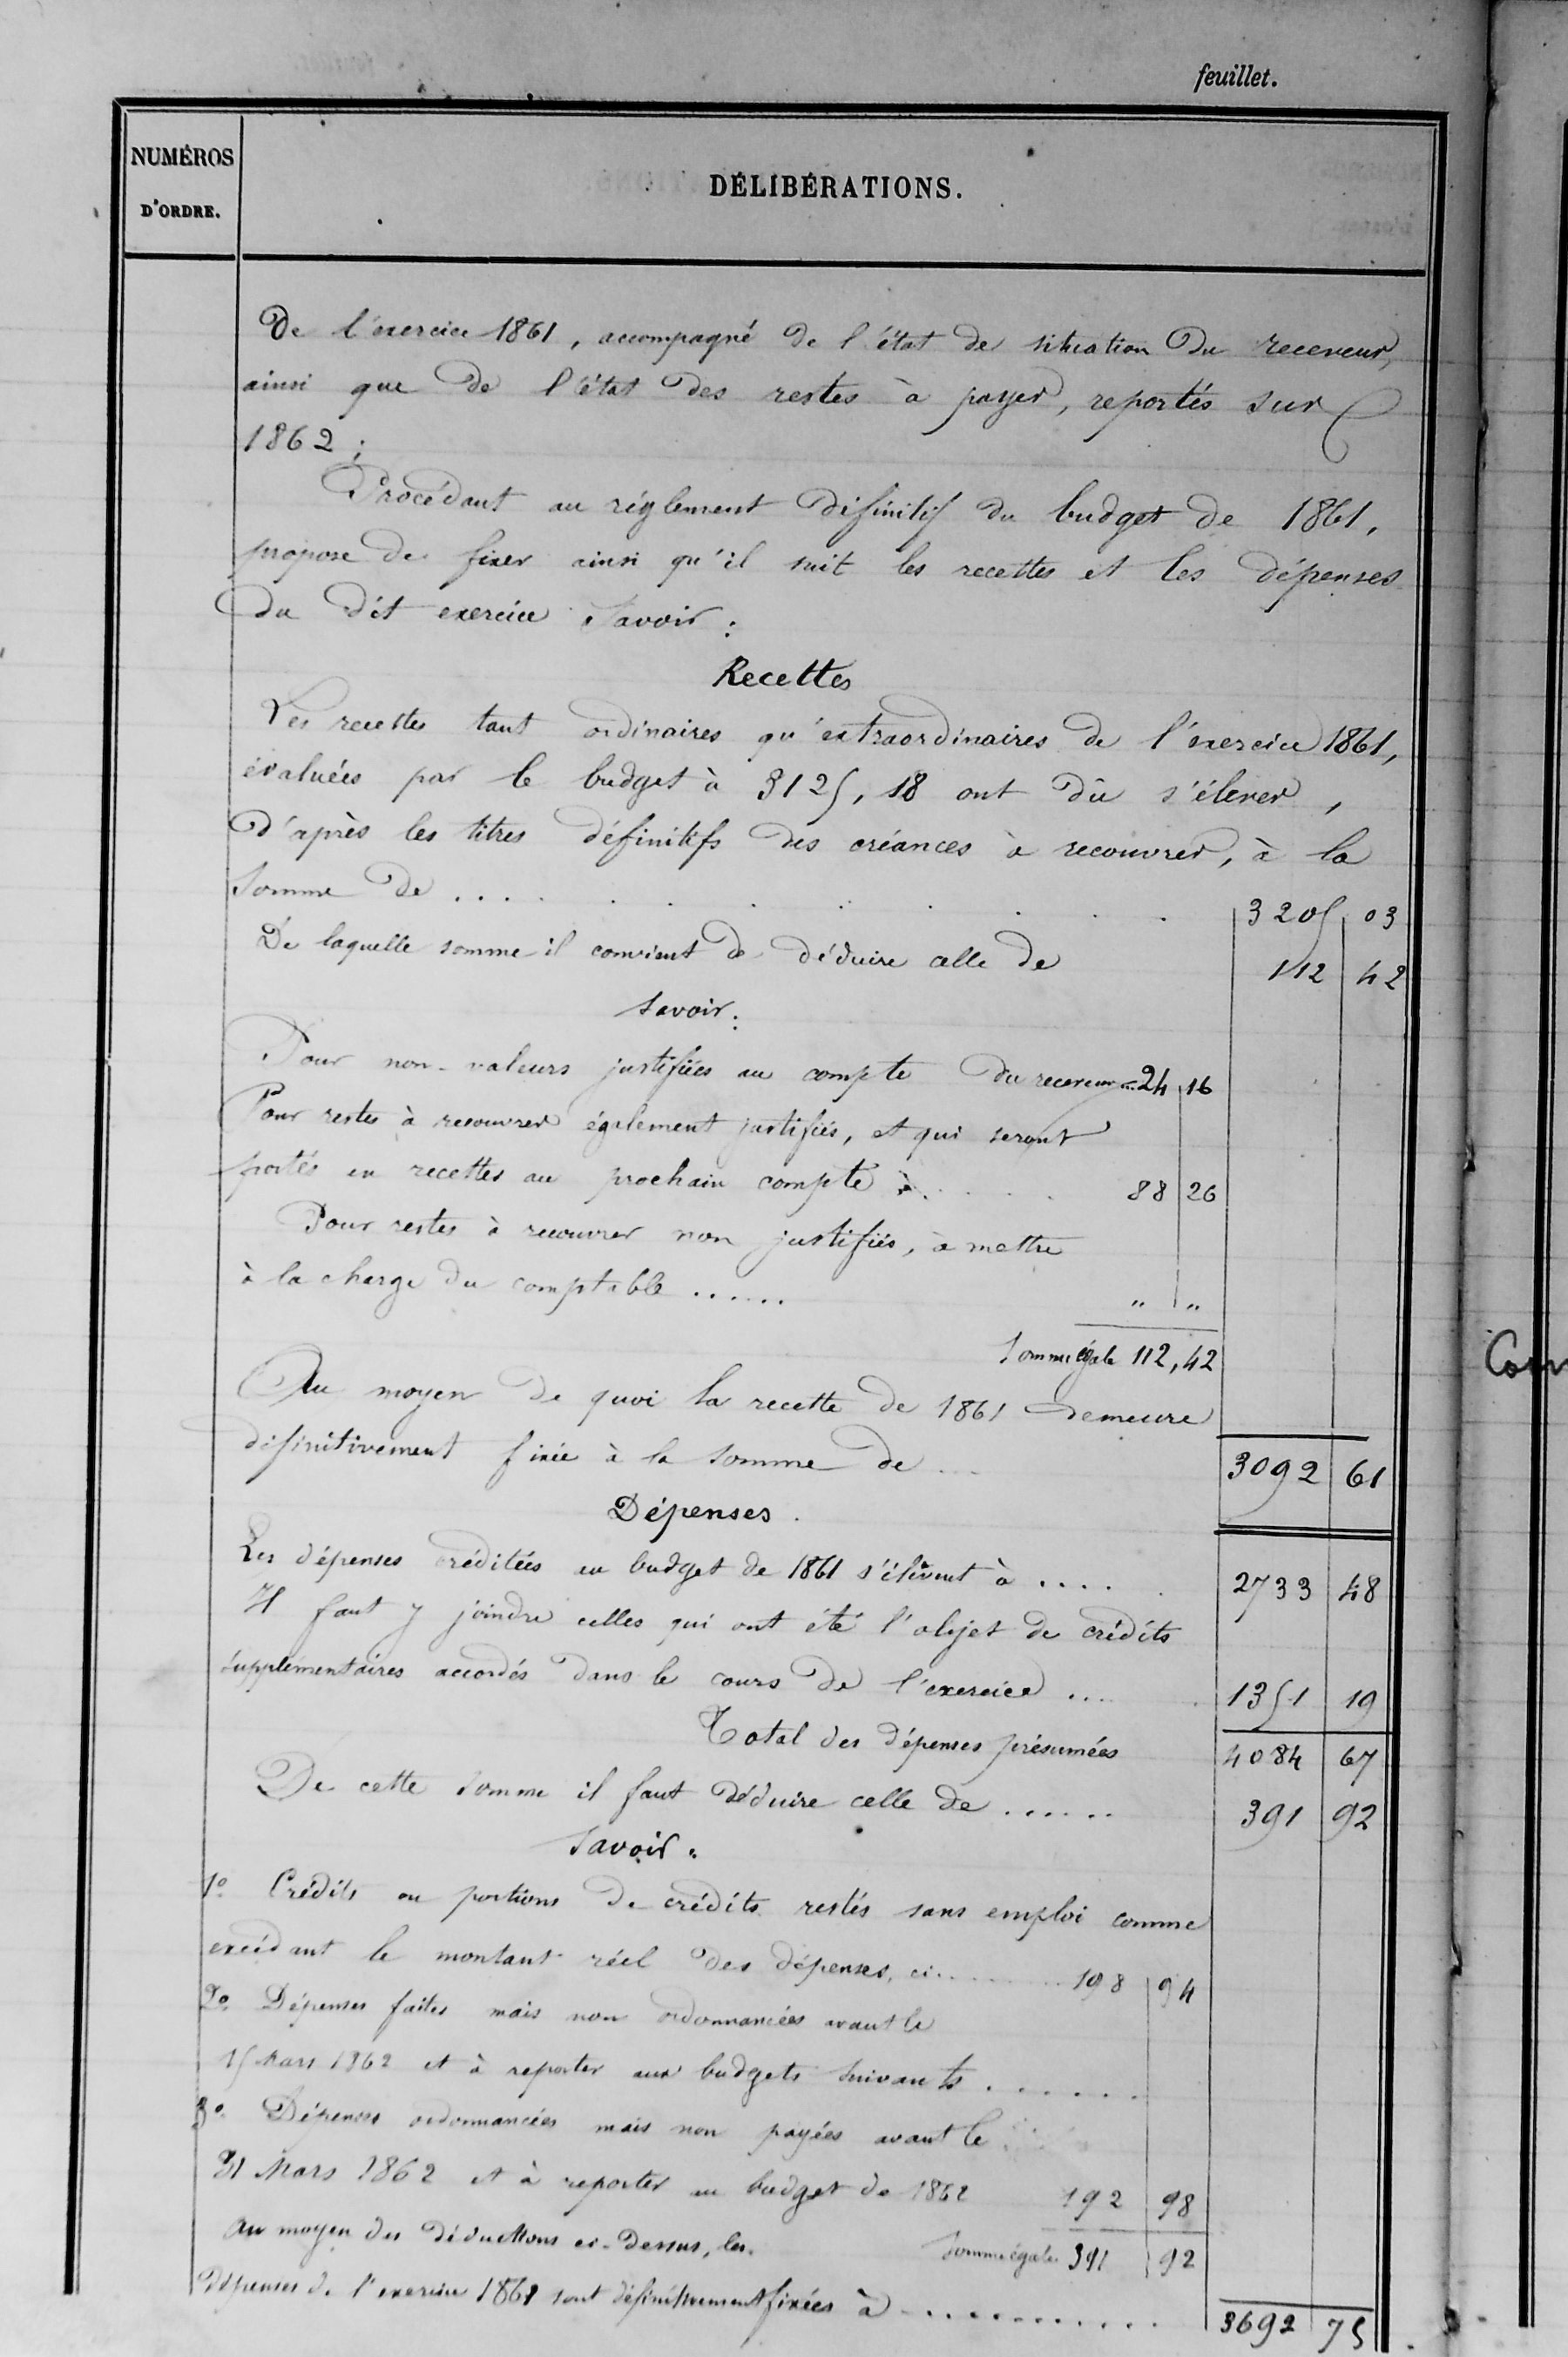 feuillet.
NUMÉROS
D'ORDRE.
DÉLIBÉRATIONS.
De l'exercice 1861, accompagné de l'état de situation du receveur,
ainsi que de l'état des restes à payer, reportés sur
1862;
Procédant au réglement définitif du budget de 1861,
propose de fixer ainsi qu'il suit les recettes et les dépenses
du dit exercice Savoir:
Recettes
Les recettes tant ordinaires qu'extraordinaires de l'exercice 1861,
évaluées par le budget à 3125,18 ont dû s'élever,
d'après les titres définitifs des créances à recouvrer, à la
Somme de .... 3205 03
De laquelle somme il convient de déduire celle de 112 42
Savoir:
Pour non-valeurs justifiées au compte du receveur 24 16
Pour restes à recouvrer également justifiés, et qui seront
portés en recettes au prochain compte à..... 88 26
Pour restes à recouvrer non justifiés, à mettre
à la charge du comptable ...... " "
Somme égale 112,42
Au moyen de quoi la recette de 1861 demeure
définitivement fixée à la somme de ... 3092 61
Dépenses.
Les dépenses créditées au budget de 1861 s'élèvent à .... 2733 48
Il faut y joindre celles qui ont été l'objet de crédits
supplémentaires accordés dans le cours de l'exercice ... 1351 19
Total des dépenses présumées 4084 67
De cette somme il faut déduire celle de ...... 391 92
Savoir:
1o Crédits ou portions de crédits restés sans emploi comme
excédant le montant réel des dépenses, ci......... 198 94
2o Dépenses faites mais non ordonnancées avant le
15 Mars 1862 et à reporter aux budgets suivants ......
3o Dépenses ordonnancées mais non payées avant le
31 Mars 1862 et à reporter au budget de 1862 192 98
Au moyen des déductions ci-dessus, les Somme égale 391 92
dépenses de l'exercice 1861 sont définitivement fixées à ........... 3692 75
Com